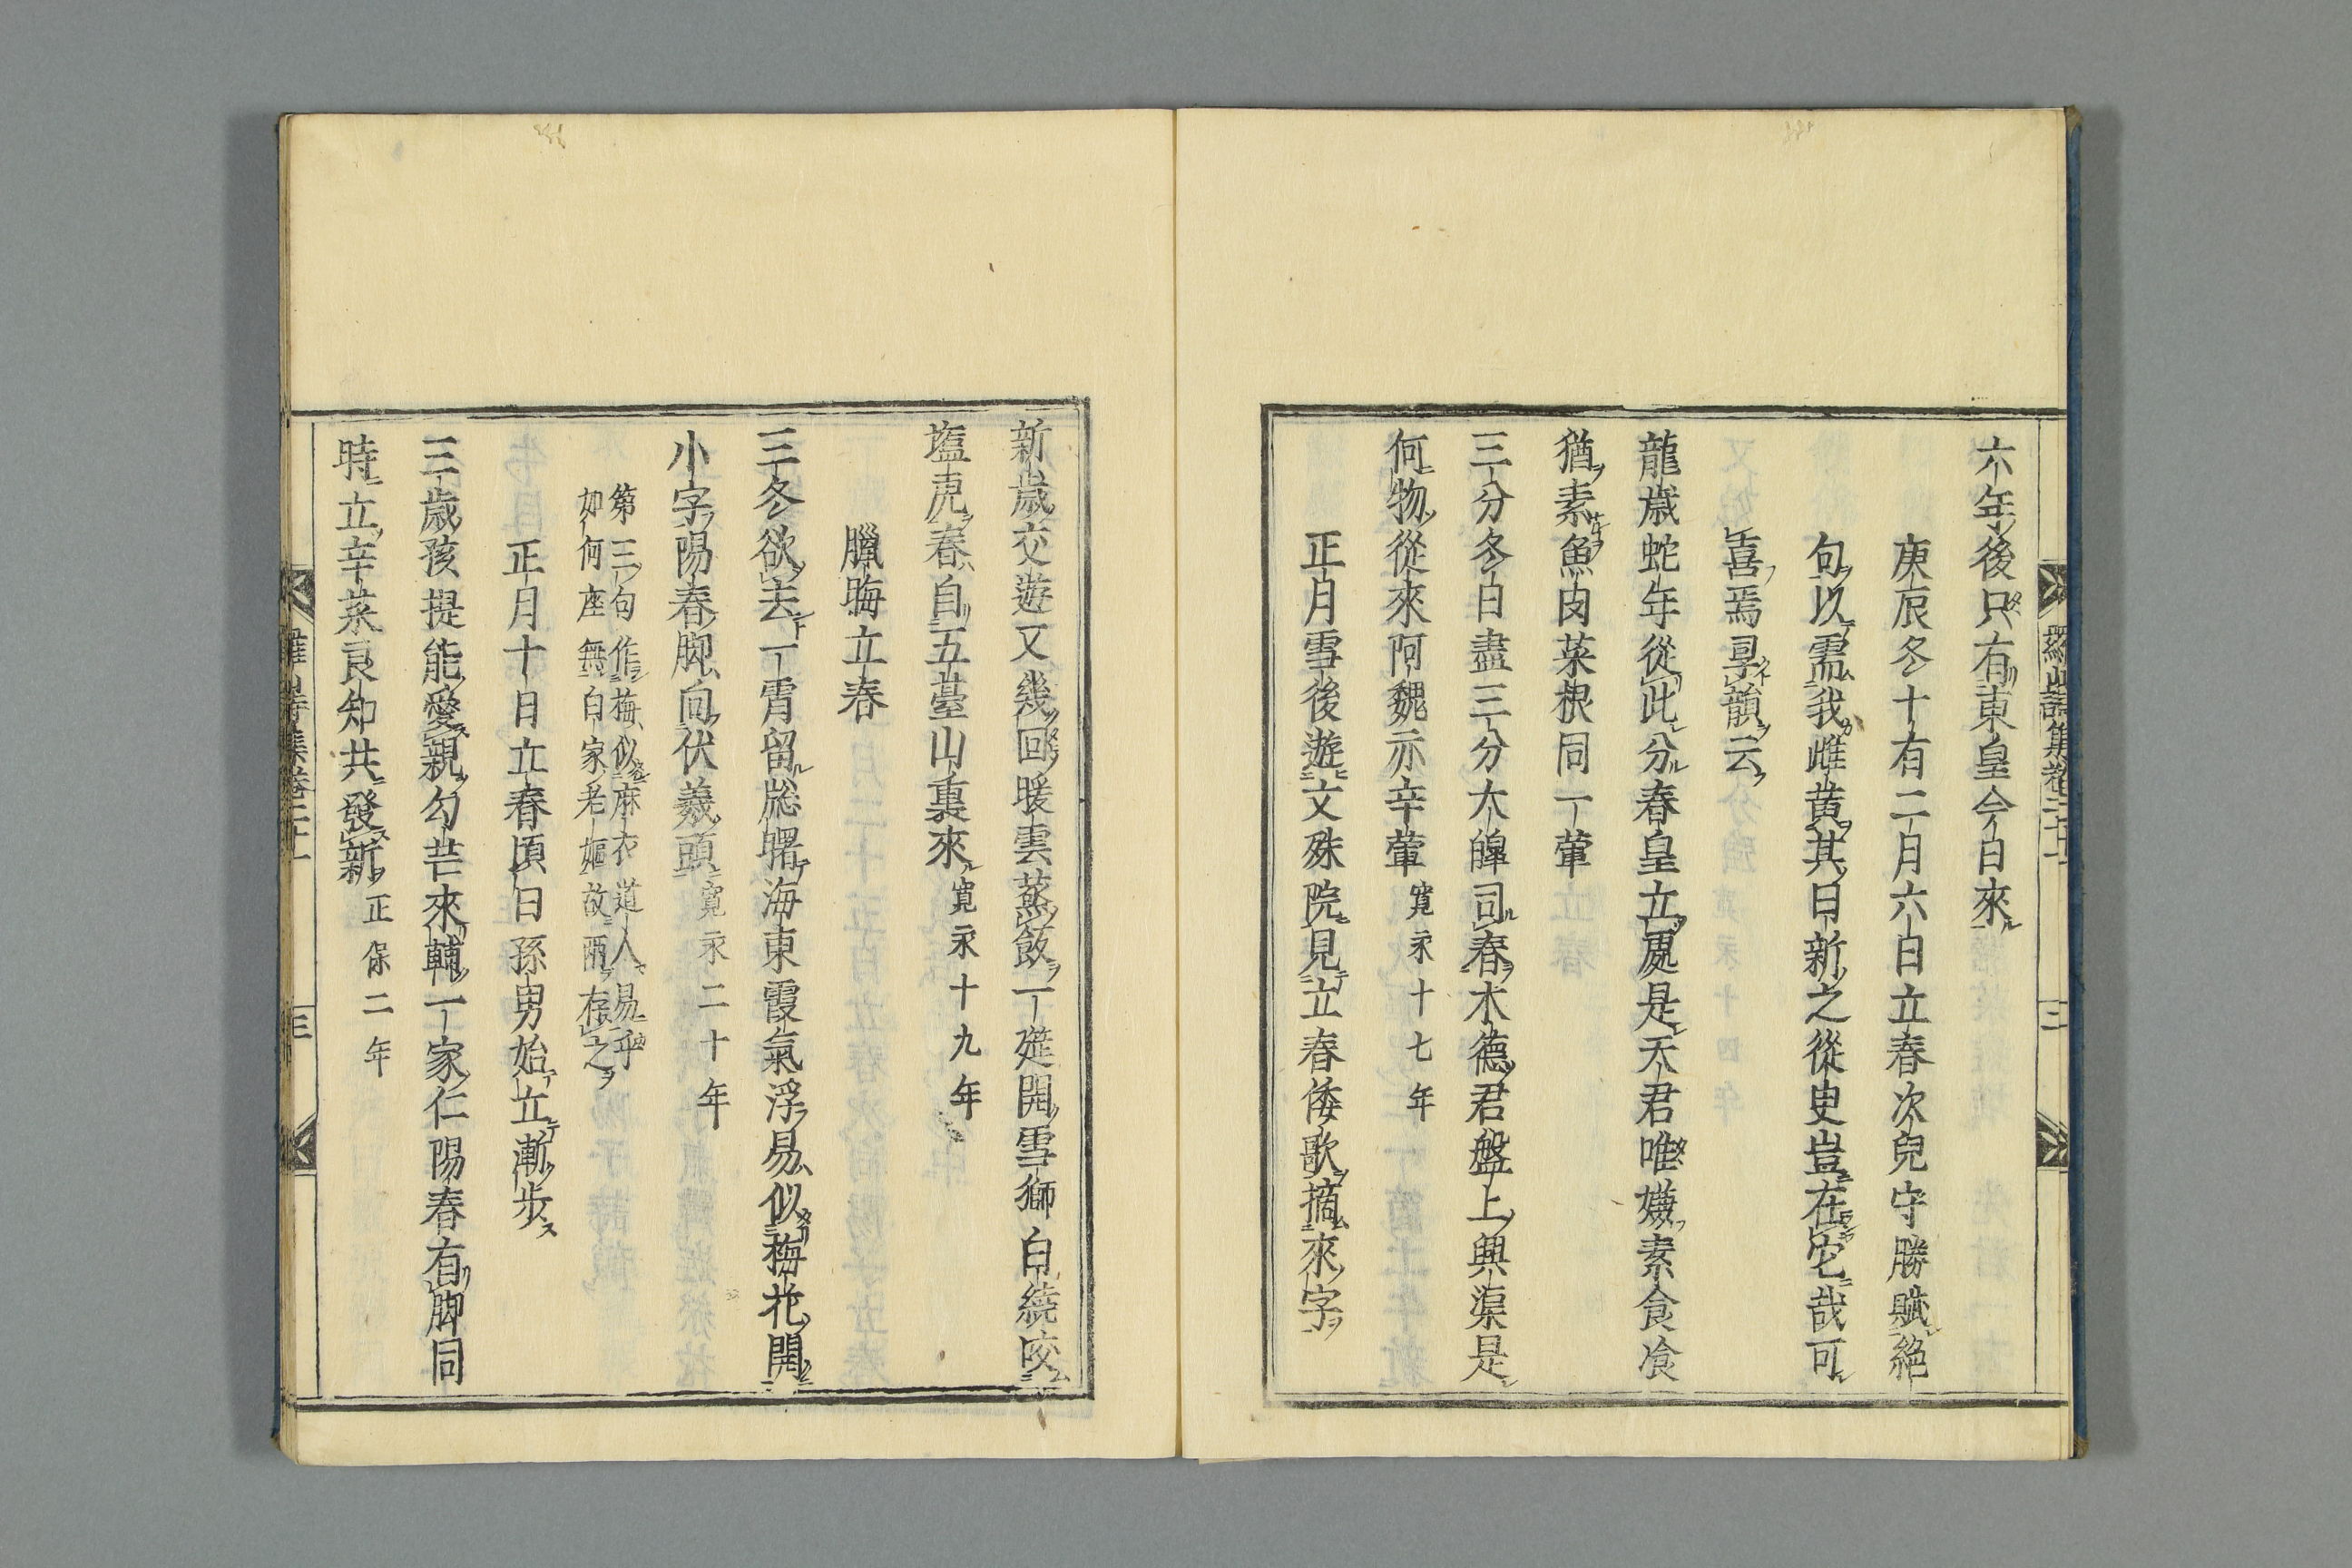 六年後只有東皇今日來
庚辰冬十有二月六日立春次兒守勝賦絶
句以需我雌黄其日新之從臾豈在它哉可
喜焉尋韻云
龍歳蛇年從此分春皇立處是天君唯嫌素食飡
猶素魚肉菜根同一葷
三分冬日盡三分太皥司春木德君盤上興渠是
何物從來阿魏亦辛葷 寛永十七年
正月雪後遊文殊院見立春倭歌摘來字
新歳交遊又幾回暖雲蒸飯一筵開雪獅白繞咬
塩虎春自五臺山裏來 寛永十九年
臘晦立春
三冬欲去一霄留牕曙海東霞氣浮易似梅花開
小字陽春脚向伏羲頭 寛永二十年
第三句作梅似麻衣道人易乎
如何座無白家老嫗故兩存之
正月十日立春頃日孫男始立漸步
三歳孩提能愛親勾芒來輔一家仁陽春有脚同
時立辛菜良知共發新 正保二年